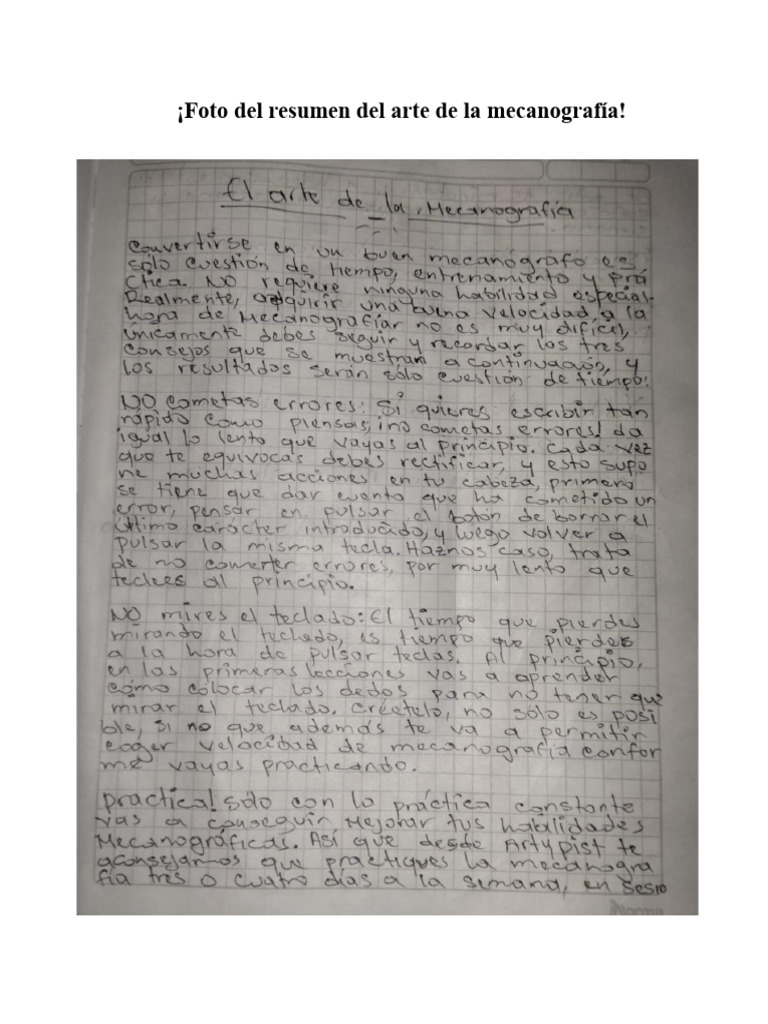 ¡Foto del resumen del arte de la mecanografía!
El arte de la Mecanografía
Convertirse en un buen mecanógrafo es
sólo cuestión de tiempo, entrenamiento y prá
ctica. No requiere ninguna habilidad especial.
Realmente, adquirir una buena velocidad a la
hora de Mecanografiar no es muy dificel,
únicamente debes seguir y recordar los tres
consejos que se muestran a continuación, y
los resultados serán sólo cuestión de tiempo:
NO cometas errores: Si quieres escribir tan
rápido como piensas, ¡no cometas errores! da
igual lo lento que vayas al principio. Cada vez
que te equivocas debes rectificar, y esto supo
ne muchas acciones en tu cabeza, primero
se tiene que dar cuenta que ha cometido un
error, pensar en pulsar el botón de borrar el
último carácter introducido, y luego volver a
pulsar la misma tecla. Haznos caso, trata
de no cometer errores, por muy lento que
teclees al principio.
NO mires el teclado: El tiempo que pierdes
mirando el teclado, es tiempo que pierdes
a la hora de pulsar teclas. Al principio,
en las primeras lecciones vas a aprender
cómo colocar los dedos para no tener que
mirar el teclado. Créetelo, no sólo es posi
ble, si no que además te va a permitir
coger velocidad de mecanografía confor
me vayas practicando.
practica! Sólo con la práctica constante
vas a conseguir Mejorar tus habilidades
Mecanográficas. Así que desde Artypist te
aconsejamos que practiques la mecanogra
fía tres o cuatro días a la semana, en sesio
Norma